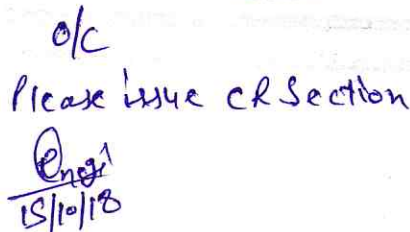 O/C
Please issue CR Section
15/10/18